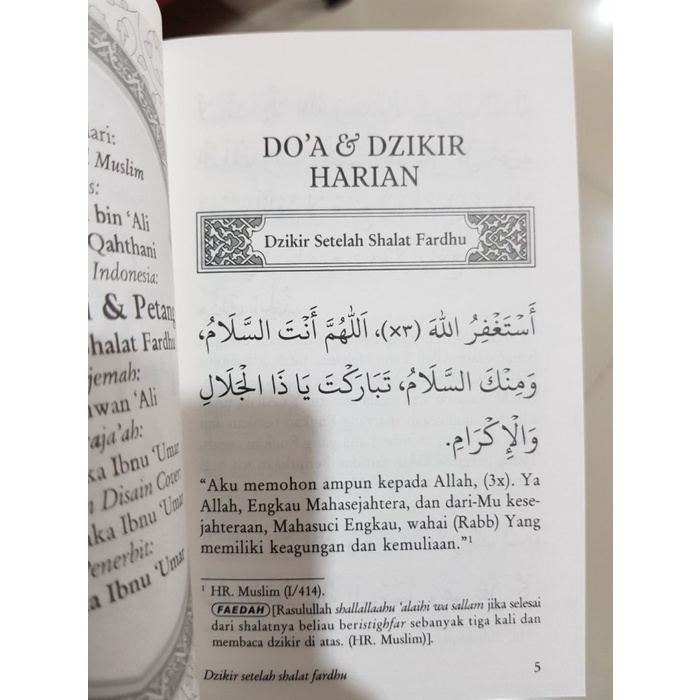 ari:
Muslim
s:
bin ‘Ali
Qahthani
Indonesia:
& Petang
Shalat Fardhu
jemah:
wan ‘Ali
raja’ah:
ka Ibnu ‘Umar
Disain Cover:
ka Ibnu ‘Umar
Penerbit:
a Ibnu ‘Umar
DO’A & DZIKIR
HARIAN
Dzikir Setelah Shalat Fardhu
أَسْتَغْفِرُ اللهَ (×٣)، اَللّٰهُمَّ أَنْتَ السَّلَامُ،
وَمِنْكَ السَّلَامُ، تَبَارَكْتَ يَا ذَا الْجَلَالِ
وَالْإِكْرَامِ.
“Aku memohon ampun kepada Allah, (3x). Ya
Allah, Engkau Mahasejahtera, dan dari-Mu kese-
jahteraan, Mahasuci Engkau, wahai (Rabb) Yang
memiliki keagungan dan kemuliaan.”¹
¹ HR. Muslim (I/414).
FAEDAH [Rasulullah shallallaahu ‘alaihi wa sallam jika selesai
dari shalatnya beliau beristighfar sebanyak tiga kali dan
membaca dzikir di atas. (HR. Muslim)].
Dzikir setelah shalat fardhu 5